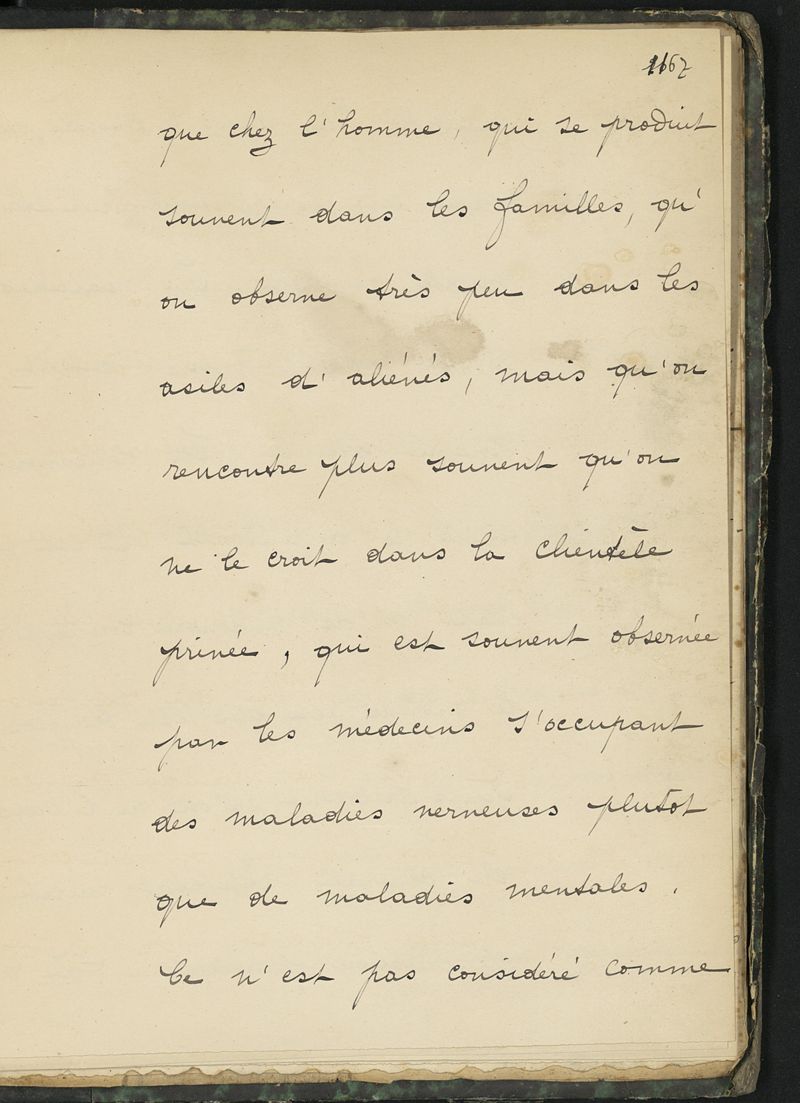 1167
que chez l'homme, qui se produit
souvent dans les familles, qu'
on observe très peu dans les
asiles d'aliénés, mais qu'on
rencontre plus souvent qu'on
ne le croit dans la clientèle
privée, qui est souvent observée
par les médecins s'occupant
des maladies nerveuses plutôt
que de maladies mentales.
Ce n'est pas considéré comme